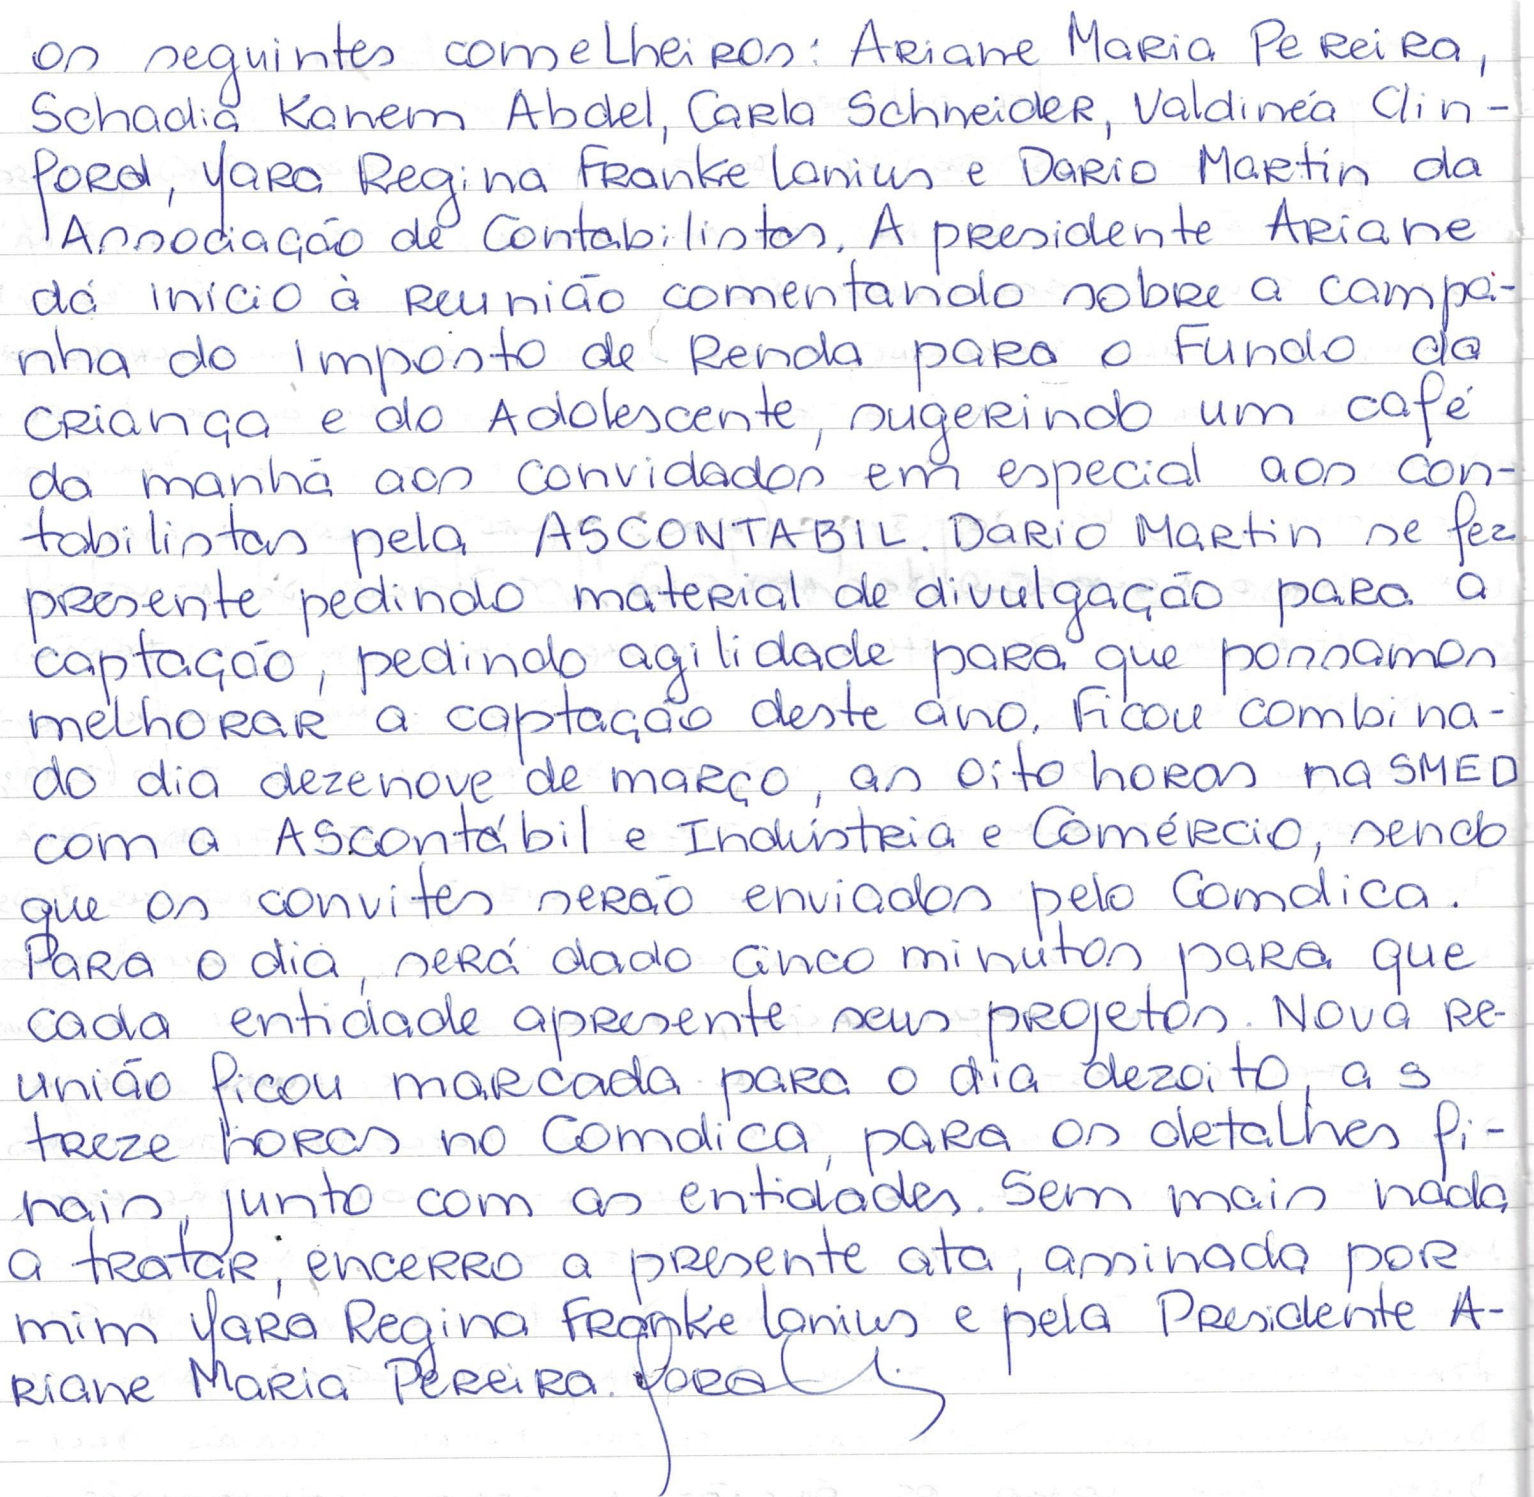 os seguintes conselheiros: Ariane Maria Pereira,
Schadia Kanem Abdel, Carla Schneider, Valdinéa Clin-
ford, Yara Regina Franke Lanius e Dario Martin da
Associação de Contabilistas. A presidente Ariane
dá início à reunião comentando sobre a campa-
nha do Imposto de Renda para o Fundo da
criança e do Adolescente, sugerindo um café
da manhã aos convidados em especial aos con-
tabilistas pela ASCONTABIL. Dario Martin se fez
presente pedindo material de divulgação para a
captação, pedindo agilidade para que possamos
melhorar a captação deste ano. Ficou combina-
do dia dezenove de março, as oito horas na SMED
com a AScontábil e Indústria e Comércio, sendo
que os convites serão enviados pelo Comdica.
Para o dia, será dado cinco minutos para que
cada entidade apresente seus projetos. Nova re-
união ficou marcada para o dia dezoito, as
treze horas no Comdica, para os detalhes fi-
nais, junto com as entidades. Sem mais nada
a tratar, encerro a presente ata, assinada por
mim Yara Regina Franke Lanius e pela Presidente A-
riane Maria Pereira. Yara